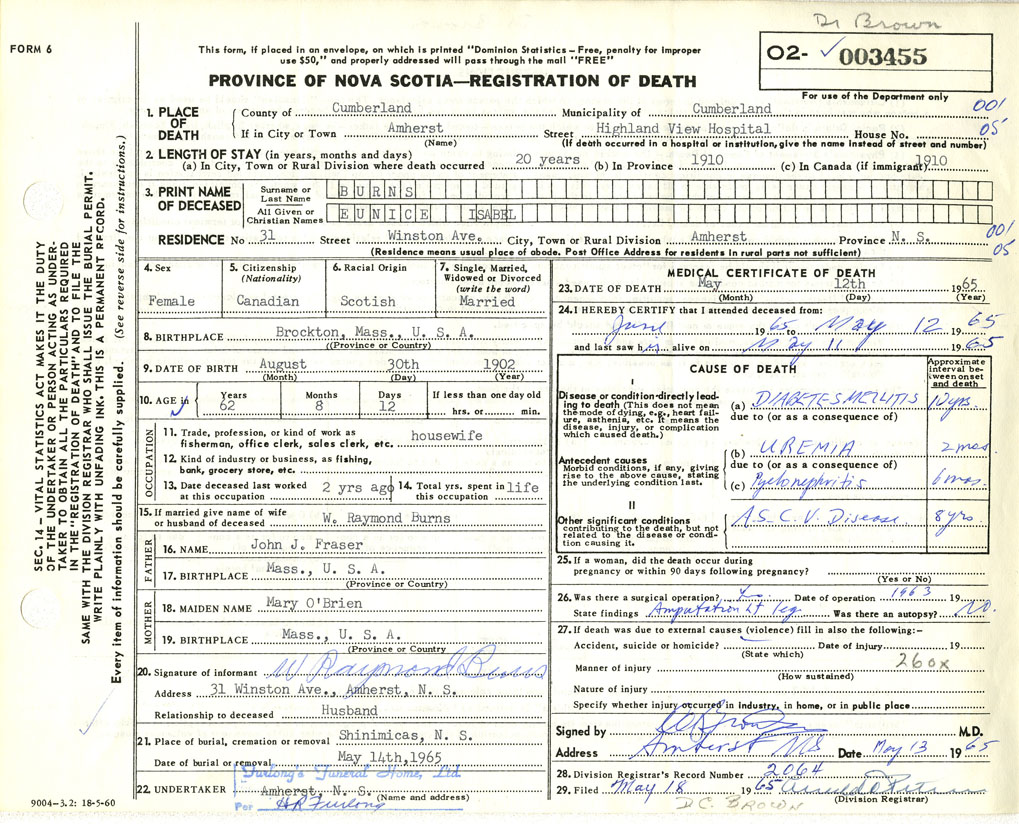 Dr Brown
FORM 6
This form, if placed in an envelope, on which is printed "Dominion Statistics – Free, penalty for improper
use $50," and properly addressed will pass through the mail "FREE"
02- ✓ 003455
PROVINCE OF NOVA SCOTIA—REGISTRATION OF DEATH
For use of the Department only
1. PLACE OF DEATH
County of Cumberland Municipality of Cumberland 001
If in City or Town Amherst Street Highland View Hospital House No. 05
(Name) (If death occurred in a hospital or institution, give the name instead of street and number)
2. LENGTH OF STAY (in years, months and days)
(a) In City, Town or Rural Division where death occurred 20 years (b) In Province 1910 (c) In Canada (if immigrant) 1910
3. PRINT NAME OF DECEASED
Surname or Last Name BURNS
All Given or Christian Names EUNICE ISABEL
RESIDENCE No 31 Street Winston Ave. City, Town or Rural Division Amherst Province N. S. 001
05
(Residence means usual place of abode. Post Office Address for residents in rural parts not sufficient)
4. Sex
Female
5. Citizenship
(Nationality)
Canadian
6. Racial Origin
Scotish
7. Single, Married,
Widowed or Divorced
(write the word)
Married
8. BIRTHPLACE Brockton, Mass., U. S. A.
((Province or Country)
9. DATE OF BIRTH August 30th 1902
(Month) (Day) (Year)
10. AGE in Years 62 Months 8 Days 12 If less than one day old
hrs. or min.
OCCUPATION
11. Trade, profession, or kind of work as
fisherman, office clerk, sales clerk, etc. housewife
12. Kind of industry or business, as fishing,
bank, grocery store, etc.
13. Date deceased last worked
at this occupation 2 yrs ago
14. Total yrs. spent in
this occupation life
15. If married give name of wife
or husband of deceased W. Raymond Burns
FATHER
16. NAME John J. Fraser
17. BIRTHPLACE Mass., U. S. A.
(Province or Country)
MOTHER
18. MAIDEN NAME Mary O'Brien
19. BIRTHPLACE Mass., U. S. A.
(Province or Country
20. Signature of informant W Raymond Burns
Address 31 Winston Ave., Amherst, N. S.
Relationship to deceased Husband
21. Place of burial, cremation or removal Shinimicas, N. S.
Date of burial or removal May 14th, 1965
Furlong's Funeral Home, Ltd.
22. UNDERTAKER Amherst, N. S. (Name and address)
Per HR Furlong
9004-3.2: 18-5-60
MEDICAL CERTIFICATE OF DEATH
23. DATE OF DEATH May 12th 1965
(Month) (Day) (Year)
24. I HEREBY CERTIFY that I attended deceased from:
June 1965 to May 12 1965
and last saw h is alive on May 11 1965
CAUSE OF DEATH
Approximate
interval be-
tween onset
and death
I
Disease or condition directly lead-
ing to death (This does not mean
the mode of dying, e.g., heart fail-
ure, asthenia, etc. It means the
disease, injury, or complication
which caused death.)
(a) DIABETES MELLITIS 10 yrs.
due to (or as a consequence of)
Antecedent causes
Morbid conditions, if any, giving
rise to the above cause, stating
the underlying condition last.
(b) UREMIA 2 mos
due to (or as a consequence of)
(c) Pyelonephritis 6 mos.
II
Other significant conditions
contributing to the death, but not
related to the disease or condi-
tion causing it.
A.S.C.V. Disease 8 yrs.
25. If a woman, did the death occur during
pregnancy or within 90 days following pregnancy?
(Yes or No)
26. Was there a surgical operation? Date of operation 1963 19
State findings Amputation Lt leg Was there an autopsy? No.
27. If death was due to external causes (violence) fill in also the following:–
Accident, suicide or homicide? Date of injury 19
(State which)
260x
Manner of injury
(How sustained)
Nature of injury
Specify whether injury occurred in industry, in home, or in public place
Signed by M.D.
Address Amherst NS Date May 13 1965
28. Division Registrar's Record Number 2064
29. Filed May 18 1965
(Division Registrar)
D.C. BROWN
SEC. 14 – VITAL STATISTICS ACT MAKES IT THE DUTY
OF THE UNDERTAKER OR PERSON ACTING AS UNDER-
TAKER TO OBTAIN ALL THE PARTICULARS REQUIRED
IN THE "REGISTRATION OF DEATH" AND TO FILE THE
SAME WITH THE DIVISION REGISTRAR WHO SHALL ISSUE THE BURIAL PERMIT.
WRITE PLAINLY WITH UNFADING INK. THIS IS A PERMANENT RECORD.
Every item of information should be carefully supplied. (See reverse side for instructions.)